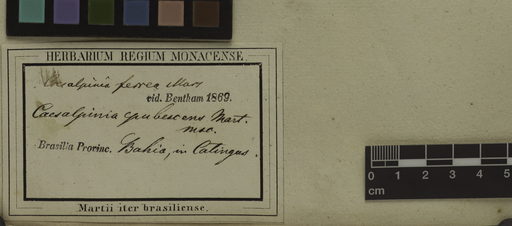 HERBARIUM REGIUM MONACENSE.
Caesalpinia ferrea Mart
vid. Bentham 1869.
Caesalpinia pubescens Mart.
msc.
Brasilia Provinc. Bahia, in Catingas.
Martii iter brasiliense.
0 1 2 3 4 5
cm